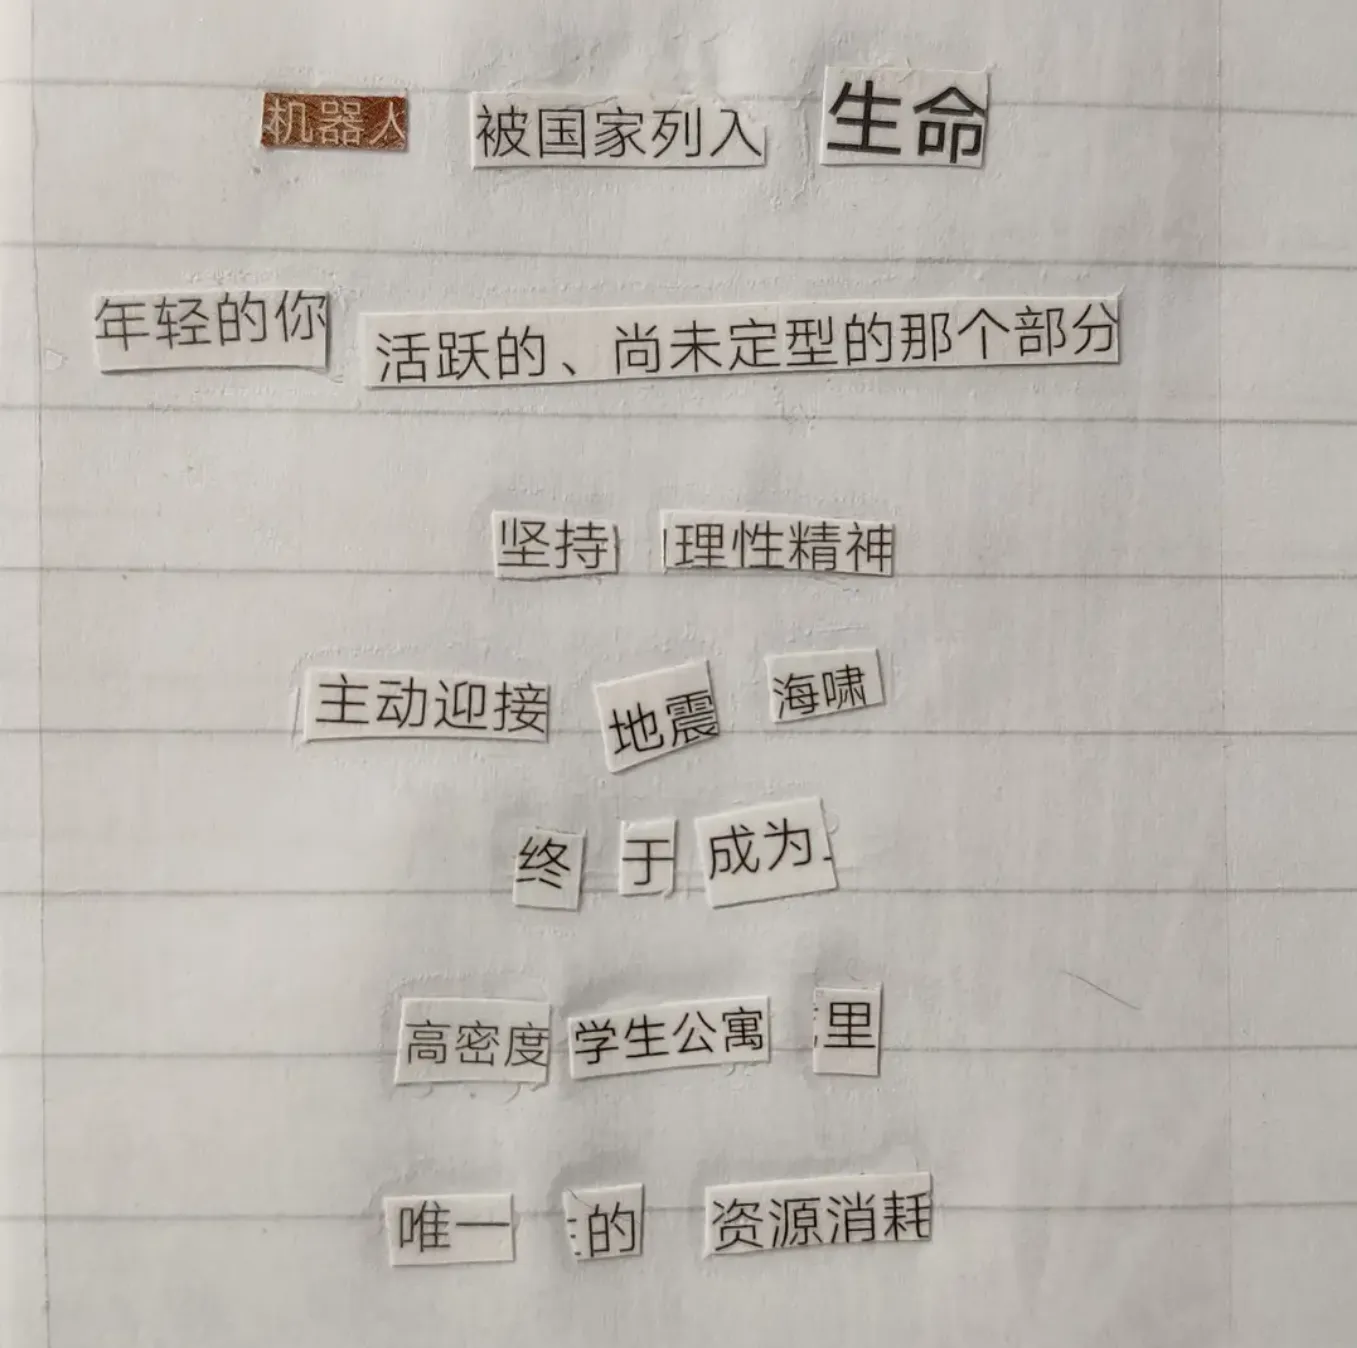 机器人 被国家列入 生命
年轻的你 活跃的、尚未定型的那个部分
坚持 理性精神
主动迎接 地震 海啸
终 于 成为
高密度 学生公寓 里
唯一 的 资源消耗